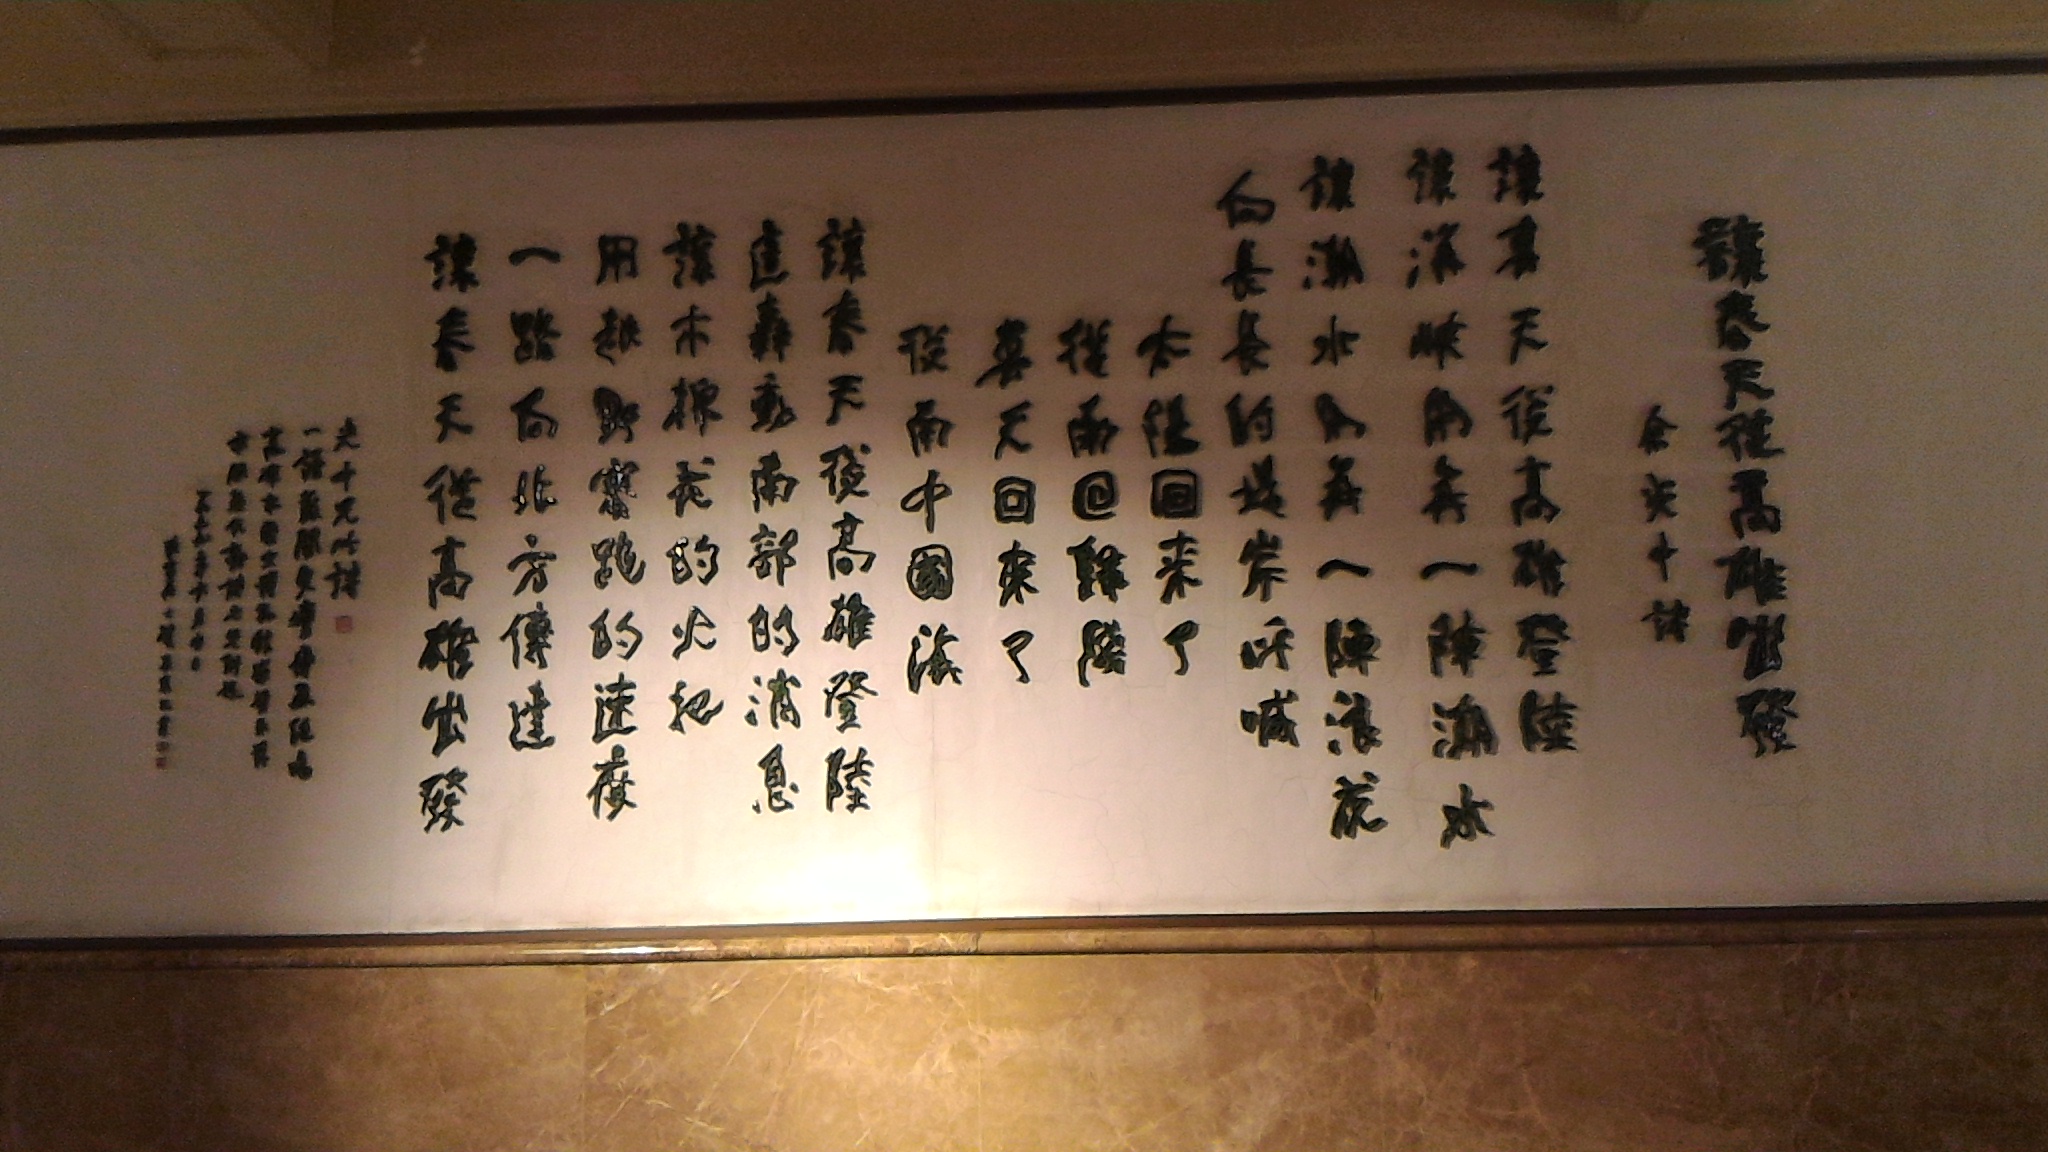 讓春天從高雄出發
余光中詩
讓春天從高雄登陸
讓海峽用每一陣潮水
讓潮水用每一陣浪花
向長長的堤岸呼喊
太陽回來了
從南回歸線
春天回來了
從南中國海
讓春天從高雄登陸
這轟動南部的消息
讓木棉花的火把
用越野賽跑的速度
一路向北方傳達
讓春天從高雄出發
光中兄此詩